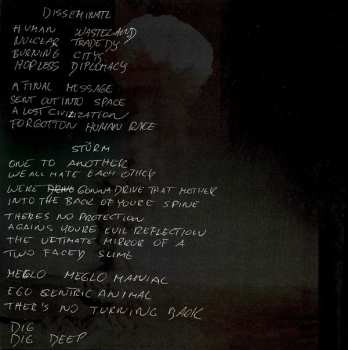 DISSEMINATE
HUMAN WASTELAND
NUCLEAR TRADEDY
BURNING CITYS
HOPLESS DIPLOMACY
A FINAL MESSAGE
SENT OUT INTO SPACE
A LOST CIVILIZATION
FORGOTTON HUMAN RACE
STÜRM
ONE TO ANOTHER
WE ALL HATE EACH OTHER
WERE GONNA DRIVE THAT MOTHER
INTO THE BACK OF YOURE SPINE
THERES NO PROTECTION
AGAINS YOURE EVIL REFLECTION
THE ULTIMATE MIRROR OF A
TWO FACED SLIME
MEGLO MEGLO MANIAC
EGO CENTRIC ANIMAL
THER'S NO TURNING BACK
DIG
DIG DEEP